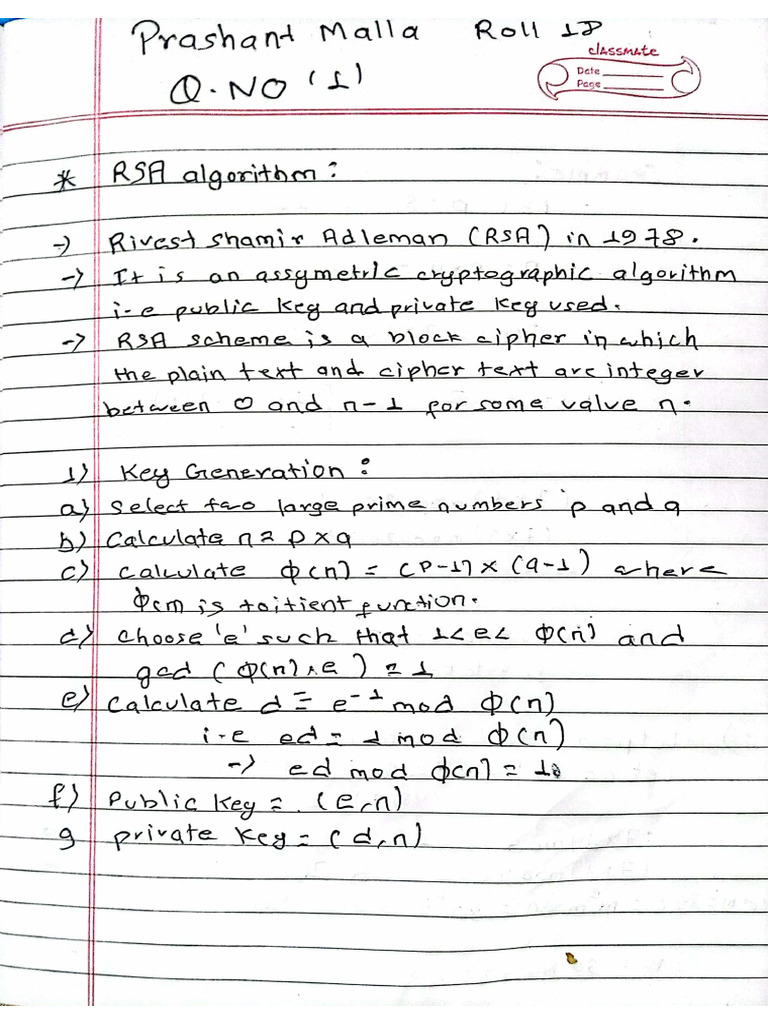 Prashant Malla Roll 18
classmate
Date
Page
Q.NO (1)
* RSA algorithm:
-> Rivest Shamir Adleman (RSA) in 1978.
-> It is an assymetric cryptographic algorithm
i-e public key and private key used.
-> RSA scheme is a block cipher in which
the plain text and cipher text are integer
between 0 and n-1 for some value n.
1) Key Generation:
a) Select two large prime numbers p and q
b) Calculate n = p x q
c) Calculate ϕ(n) = (p-1) x (q-1) where
ϕ(n) is toitient function.
d) choose 'e' such that 1 < e < ϕ(n) and
gcd (ϕ(n), e) = 1
e) Calculate d ≡ e⁻¹ mod ϕ(n)
i-e ed = 1 mod ϕ(n)
-> ed mod ϕ(n) = 1.
f) Public key = (e, n)
g private key = (d, n)